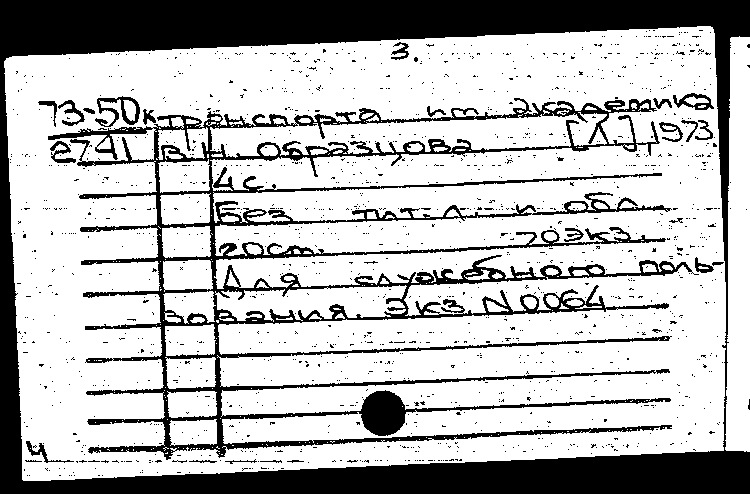 3.
73-50к транспорта им. академика
е741 В.Н. Образцова. [Л.], 1973.
4 с.
Без тит. л. и обл.
20 см. 70 экз.
Для служебного поль-
зования. Экз. N 0064
4